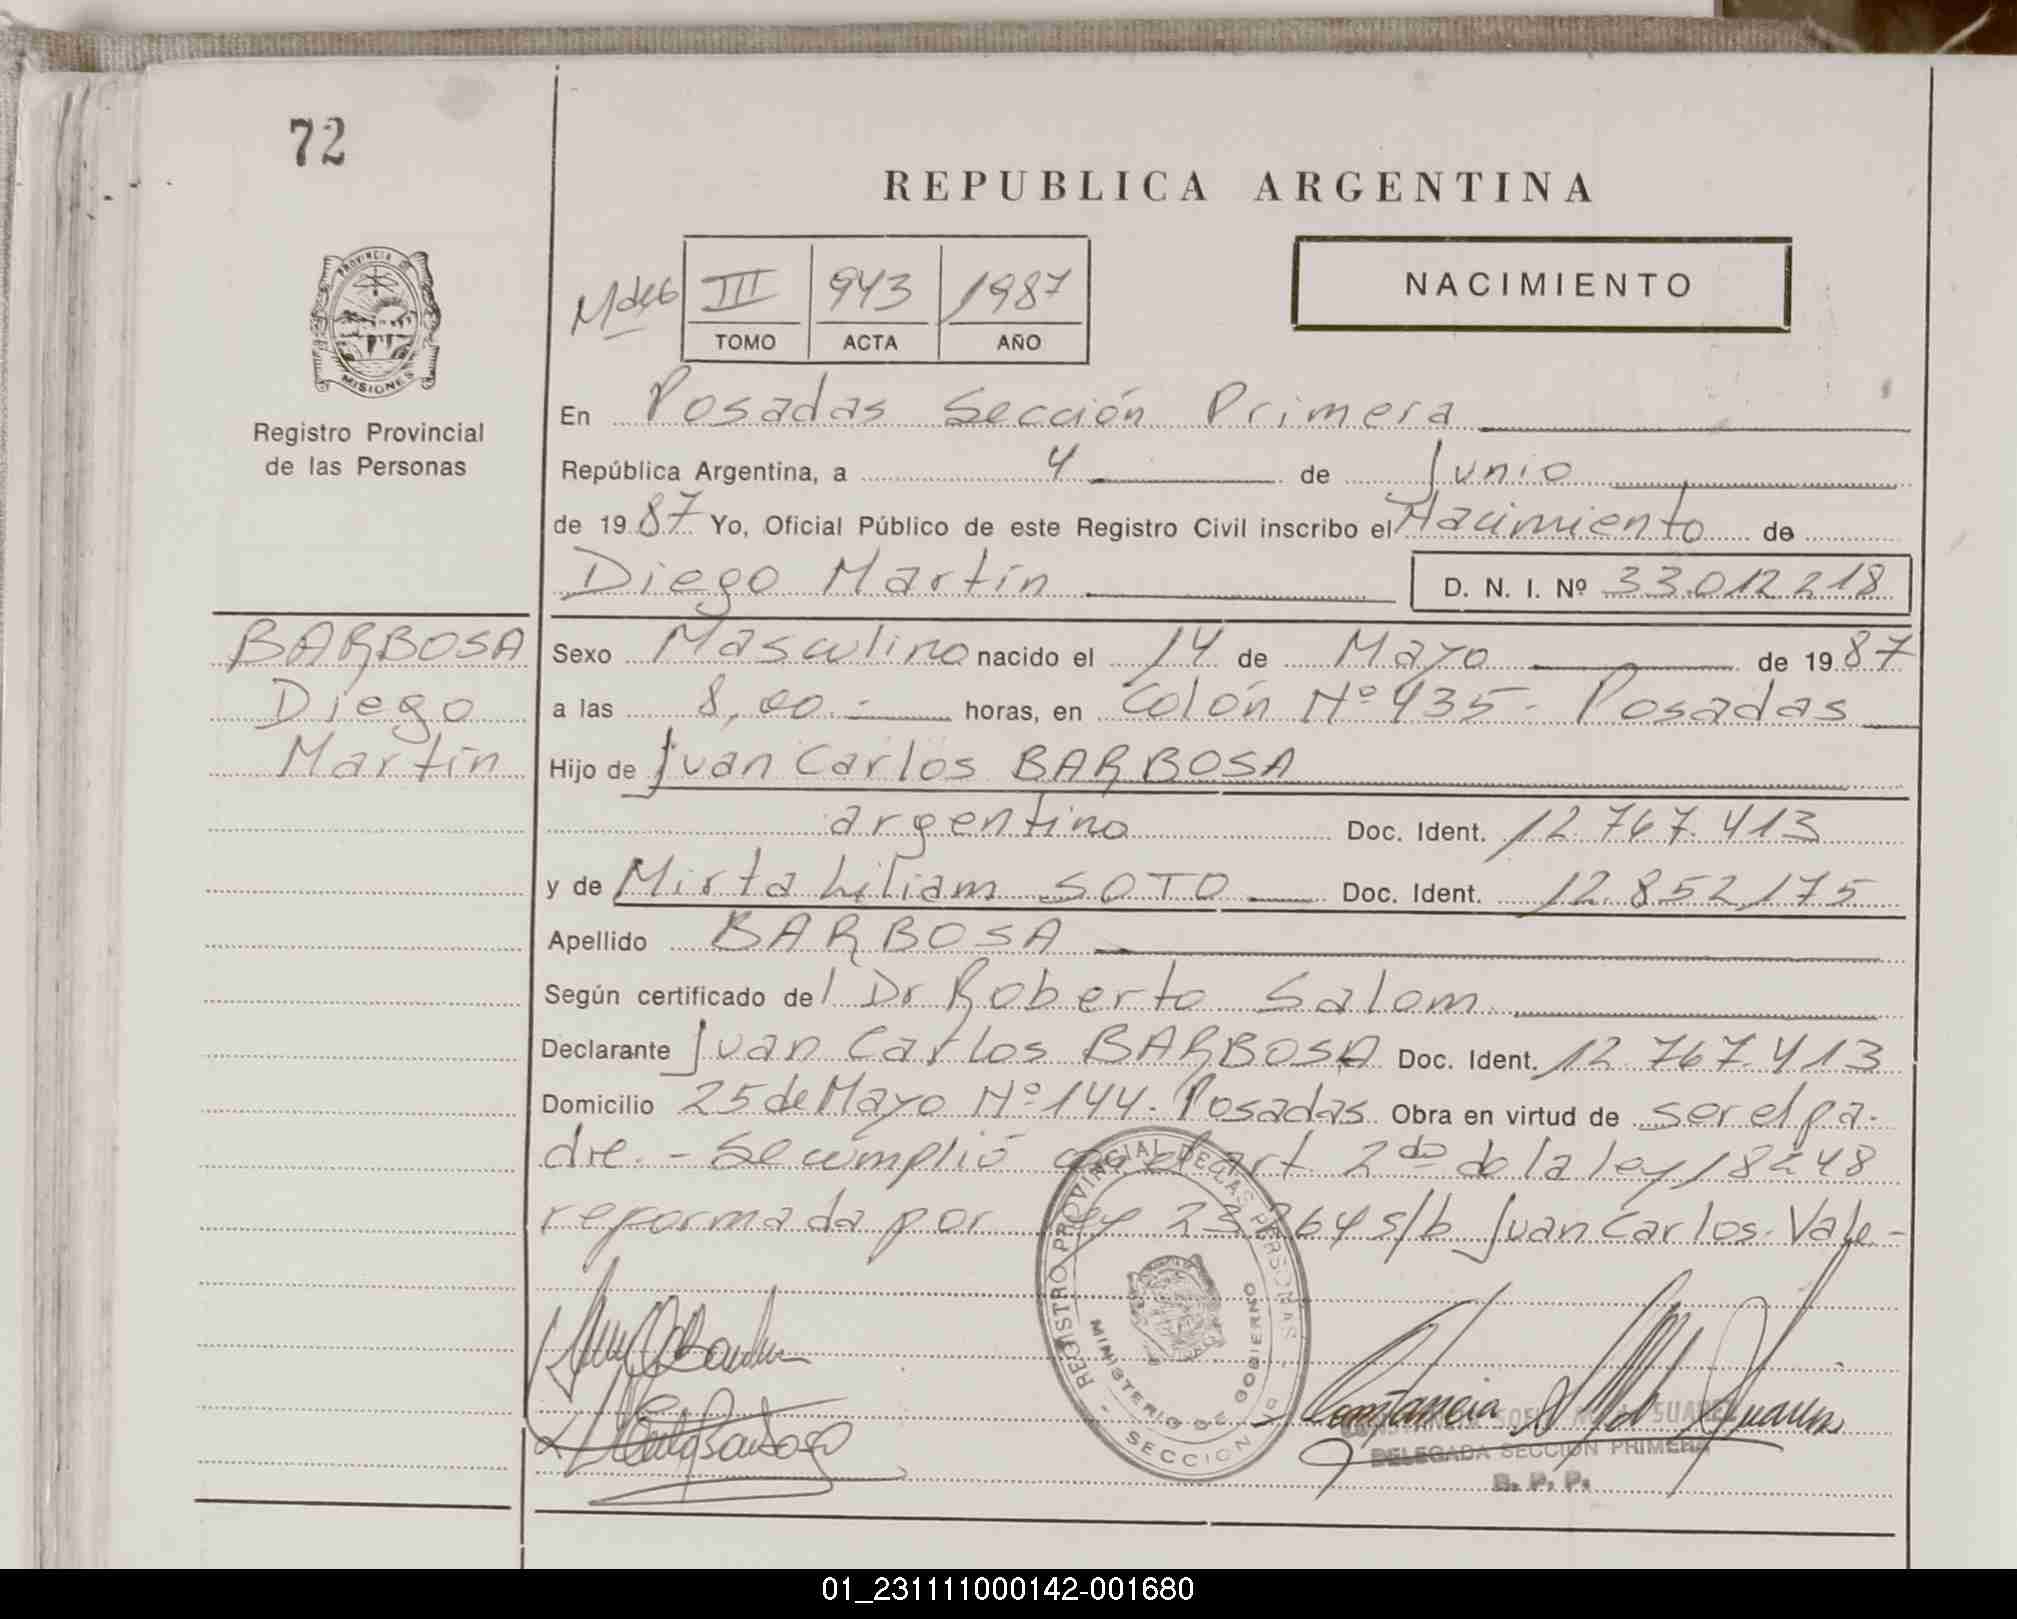 72
REPUBLICA ARGENTINA
III 943 1987
TOMO ACTA AÑO
NACIMIENTO
PROVINCIA DE MISIONES
Registro Provincial
de las Personas
En Posadas Sección Primera
República Argentina, a 4 de Junio
de 1987 Yo, Oficial Público de este Registro Civil inscribo el Nacimiento de
Diego Martín D. N. I. Nº 33.012.218
BARBOSA
Diego
Martín
Sexo Masculino nacido el 14 de Mayo de 1987
a las 8,00.- horas, en Colón Nº 935- Posadas
Hijo de Juan Carlos BARBOSA
argentino Doc. Ident. 12.767.413
y de Mirta Liliam SOTO Doc. Ident. 12.852175
Apellido BARBOSA
Según certificado del Dr Roberto Salom
Declarante Juan Carlos BARBOSA Doc. Ident. 12.767.413
Domicilio 25 de Mayo Nº 144. Posadas Obra en virtud de ser el pa-
dre.- Se cumplió art 2do de la ley 18248
reformada por ley 23.264 s/b Juan Carlos. Vale-
REGISTRO PROVINCIAL DE LAS PERSONAS
MINISTERIO DE GOBIERNO
SECCION
SUAREZ
DELEGADA SECCION PRIMERA
01_231111000142-001680